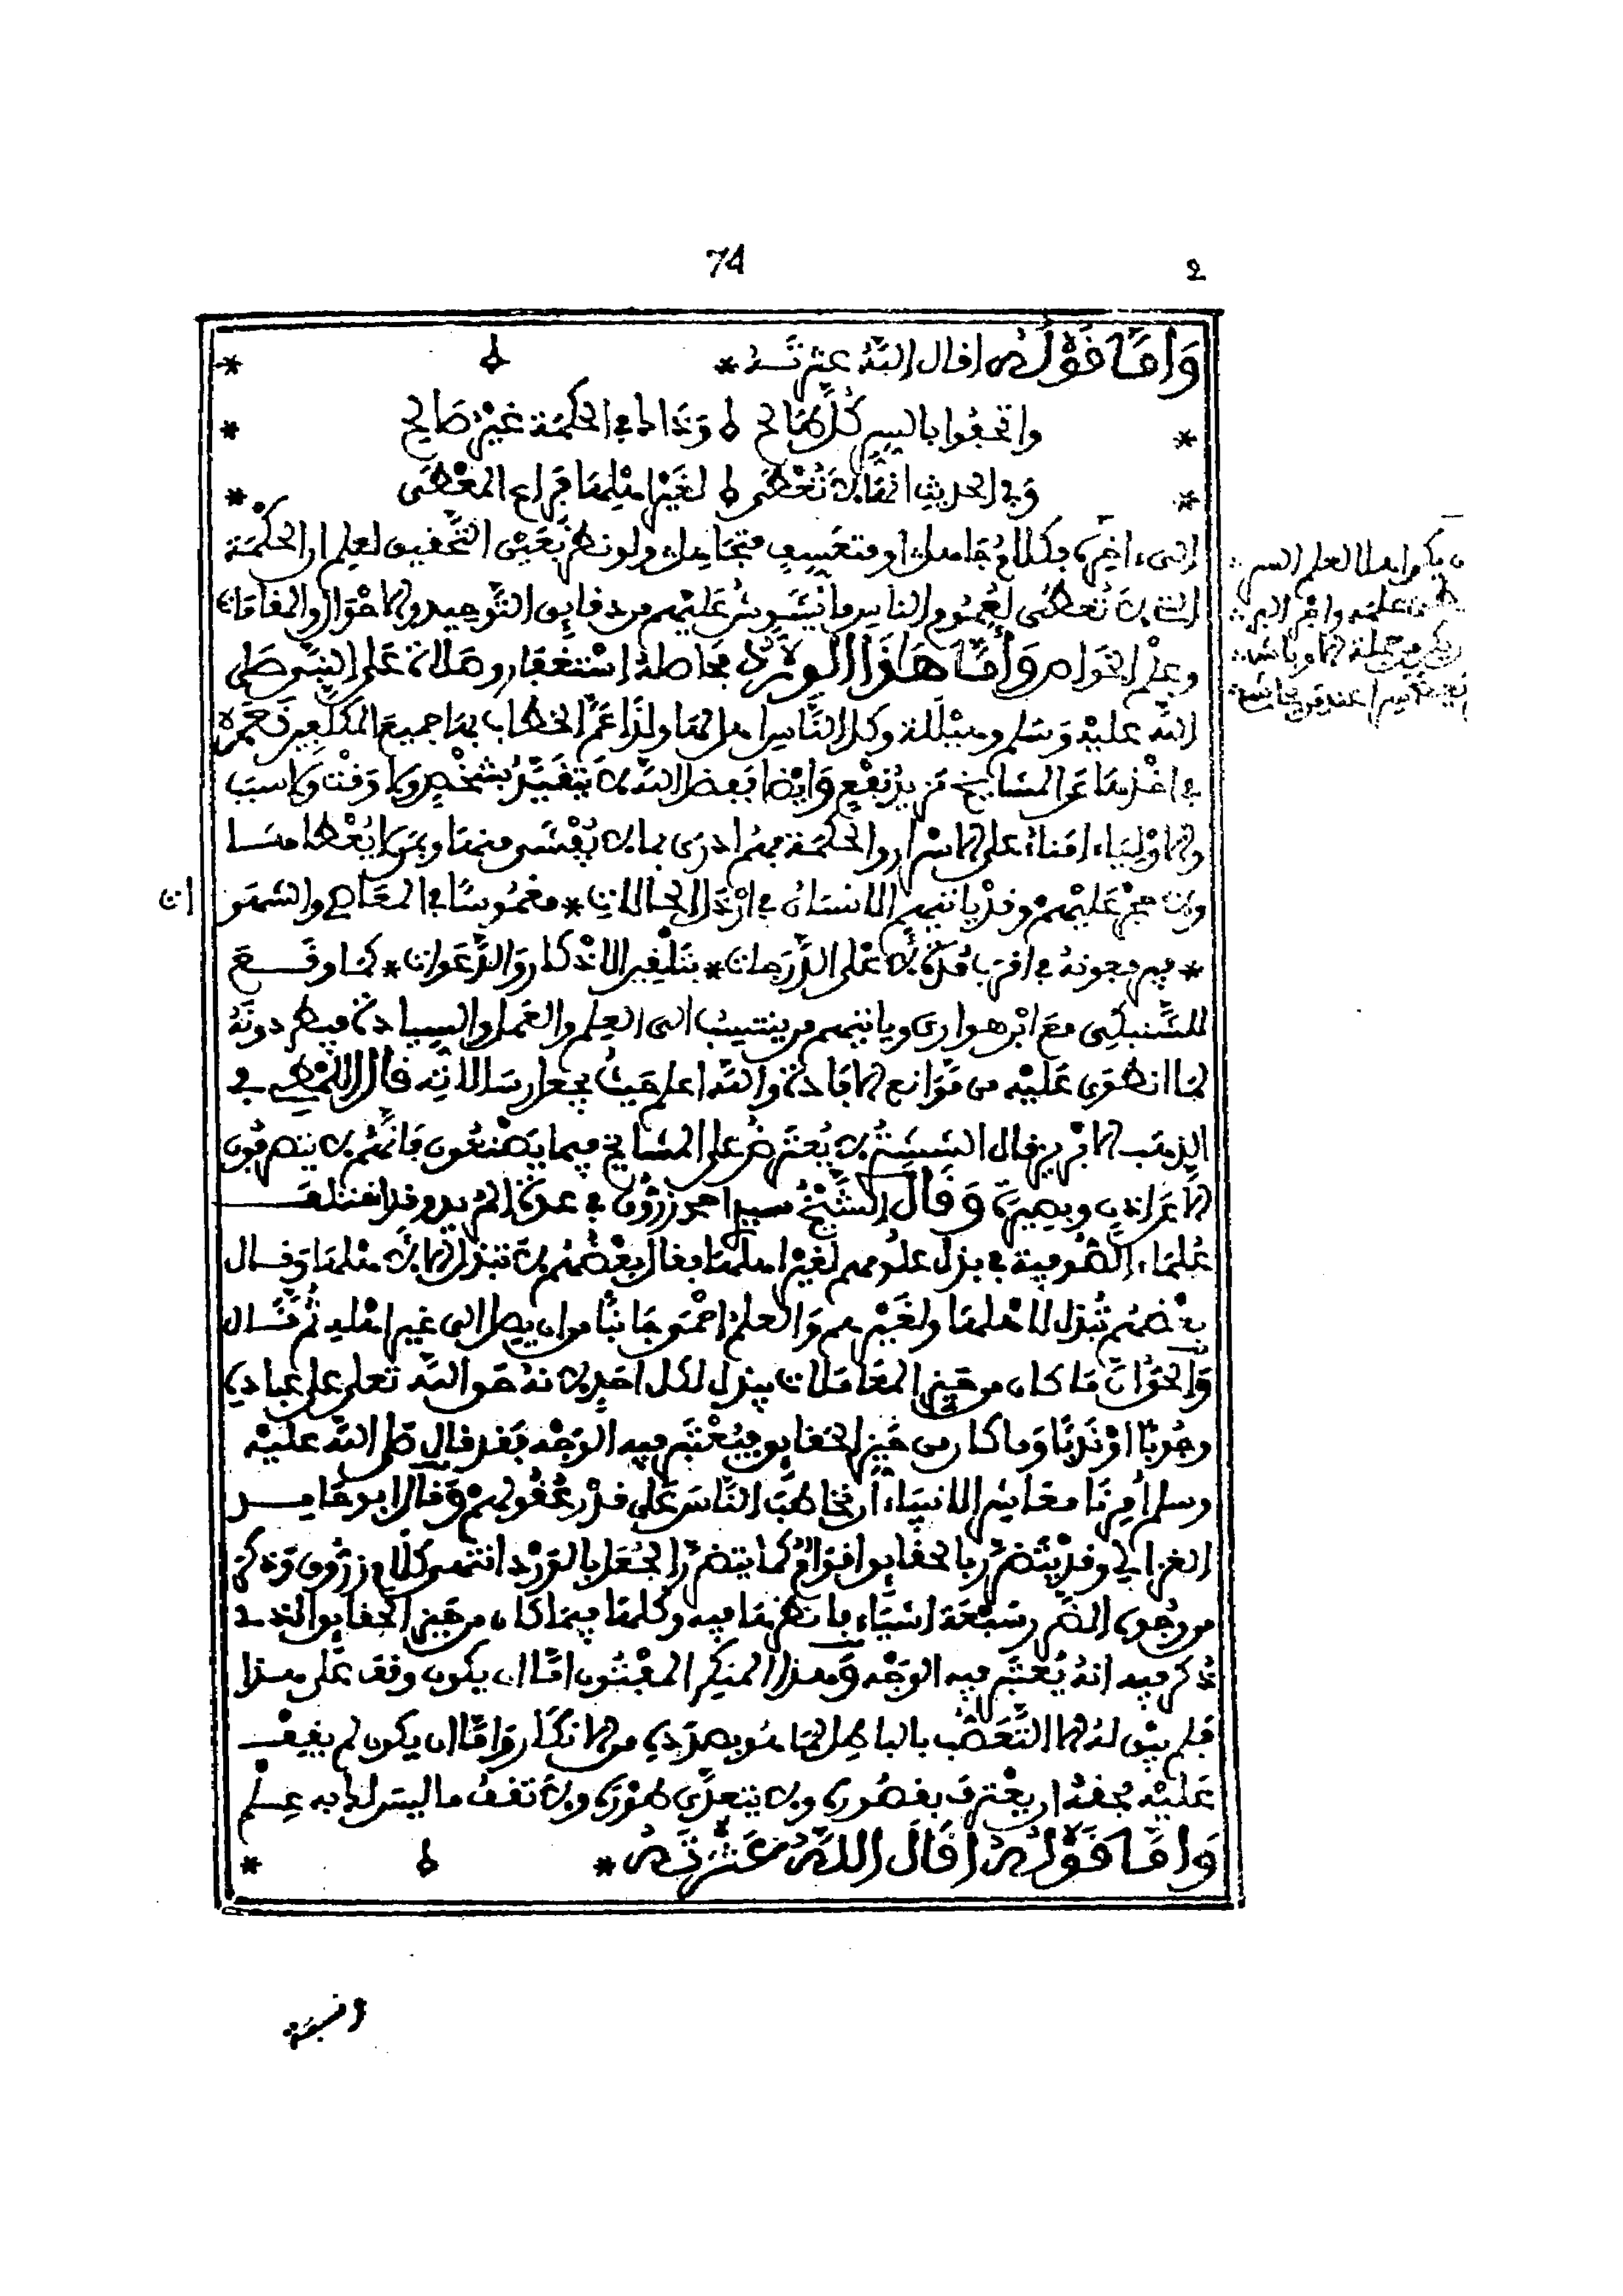 74
2
وَأمّا قَوْلُهُ اقال اللّه عثرته *
* واتحفوا بالسر كُلَّ صَالح ه وَذَاكَ في الحكمة غيْر صَالح *
* وَفي الحديث انها لا تُعْطَى ه لغَيْر اهْلِهَا فَرَاعِ المعْطَى *
الى ءاخِرِه فكلامُ جَاهل او متعسِف متجَاهِل ولو نظر بعَيْن التَّحقيق لعلِم ان الحكْمَة
التي لا تُعطَى لعُموم الناس ما يُشَوِشُ عَليْهم من دقايق التَّوحيد والاحْوَال والمقامَات
وعِلْم الخواص وَأمّا هَذَا الورْدُ فحاصلهُ اسْتغفار وصَلاة عَلى النبي صَلى
اللّه عليْه وَسَلم وهيْللة وكل النَّاس اهل لها ولذَا عَمَّ الخطاب بها جميعَ المكلفين
في اخْذهَا عن المشايخ مَزيدُ نفْع وَايْضا بفضل اللّه لا يتقيَّدُ بشخْص ولا وَقْت ولا سبَب
والاوْلياء امَناءُ على الاسْرار والحكمة فهُم ادرى بما لا يُفْشى منها وبمن لا يُعْطاها
ولا حجْرَ عَليْهمْ وقدْ ياتيهم الانسَانُ في ارْذَل الحالات * مغمُوسًا في المعَاصي والشهوَ ات
* فيرفعونهُ في اقرب مُدّة لاعْلى الدَّرجات * بتلْقين الاذكار وَالدَّعوات * كما وقَع
للشَّنبكى مَعَ ابْن هوارى وياتيهم من ينتسِبُ الى العِلم والعَمل والسيادة فيطردونَهُ
لما انطَوى عَليْه من مَوَانع الافادة واللّه اعلم حَيثُ يجعل رسَالاتِه قال اللَّمْطي في
الذهب الابْريز قال الشيخ لا يُعترَضُ على المشايخ فيما يَصْنعُون فَانَّهُم لا يتصرفُون
الا عَن اذن وبصيرَة وَقَالَ الشَّيْخُ سيدى احمد زرُّوق في عدة المُريد وقد اختلف
عُلماءُ الصُّوفية في بذل علُومهم لغيْر اهلها فقال بعْضُهُم لا تبْذل الا لاهلها وَقال
بعْضهُم تُبْذل لاهْلها ولغَيْرهم وَالعلمُ احْمى جَانبًا من ان يصِل الى غيْر اهْله ثُم قَال
وَالحَقُ انَّ مَا كان من حَيز المعَامَلات يبْذل لكل احَد لانهُ حَق اللّه تعلى على عباده
وجُوبًا اوْ نَدْبًا وَما كان من حَيّز الحقايق فيُعْتبَر فيه الوَجْه فقد قال صَلى اللّه عليْه
وسلم أمِرْنَا مَعَاشِر الانبياء أن نُخاطبَ النَّاسَ عَلى قدْر عُقُولهمْ وَقال ابو حَامِد
الغزالي وقدْ يتَضرّر بالحقايق اقوَامٌ كما يتضرّر الجُعَل بالوَرْد انتهى كلام زرُّوق وَذكر
من وجُوه الضّرر سَبْعَة اشيَاء فانظرهَا فيه وكلها فيما كان من حَيّز الحقايق الذى
ذكر فيه انهُ يُعتبَر فيه الوَجْه وَهذا المنكِر المفْتُون امّا ان يكون وقف عَلى هذا
فلم يبْق لهُ الا التَّعَصُّب بالباطل لما هُو بصدَده من الانكَار وَامّا ان يكون لم يقِف
عَليْه فحقهُ ان يعْترفَ بقصُوره ولا يتعدَّى طوْرَه ولا تَقفُ ما ليس لك به عِلم
وَأمّا قَوْلُهُ اقَالَ اللّهُ عَثْرَتَهُ * ه *